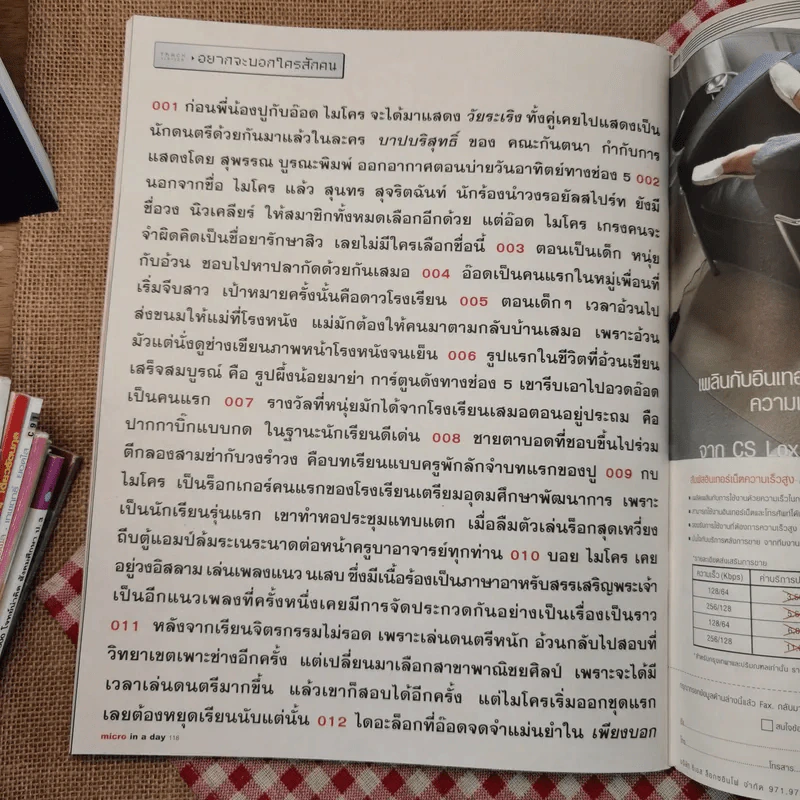 อยากจะบอกใครสักคน
001 ก่อนพี่น้องปูกับอ๊อด ไมโคร จะได้มาแสดง วัยระเริง ทั้งคู่เคยไปแสดงเป็น
นักดนตรีด้วยกันมาแล้วในละคร บาปบริสุทธิ์ ของ คณะกันตนา กำกับการ
แสดงโดย สุพรรณ บูรณะพิมพ์ ออกอากาศตอนบ่ายวันอาทิตย์ทางช่อง 5 002
นอกจากชื่อ ไมโคร แล้ว สุนทร สุจริตฉันท์ นักร้องนำวงรอยัลสไปร์ท ยังมี
ชื่อวง นิวเคลียร์ ให้สมาชิกทั้งหมดเลือกอีกด้วย แต่อ๊อด ไมโคร เกรงคนจะ
จำผิดคิดเป็นชื่อยารักษาสิว เลยไม่มีใครเลือกชื่อนี้ 003 ตอนเป็นเด็ก หนุ่ย
กับอ้วน ชอบไปหาปลากัดด้วยกันเสมอ 004 อ๊อดเป็นคนแรกในหมู่เพื่อนที่
เริ่มจีบสาว เป้าหมายครั้งนั้นคือดาวโรงเรียน 005 ตอนเด็กๆ เวลาอ้วนไป
ส่งขนมให้แม่ที่โรงหนัง แม่มักต้องให้คนมาตามกลับบ้านเสมอ เพราะอ้วน
มัวแต่นั่งดูช่างเขียนภาพหน้าโรงหนังจนเย็น 006 รูปแรกในชีวิตที่อ้วนเขียน
เสร็จสมบูรณ์ คือ รูปผึ้งน้อยมาย่า การ์ตูนดังทางช่อง 5 เขารีบเอาไปอวดอ๊อด
เป็นคนแรก 007 รางวัลที่หนุ่ยมักได้จากโรงเรียนเสมอตอนอยู่ประถม คือ
ปากกาบิ๊กแบบกด ในฐานะนักเรียนดีเด่น 008 ชายตาบอดที่ชอบขึ้นไปร่วม
ตีกลองสามช่ากับวงรำวง คือบทเรียนแบบครูพักลักจำบทแรกของปู 009 กบ
ไมโคร เป็นร็อกเกอร์คนแรกของโรงเรียนเตรียมอุดมศึกษาพัฒนาการ เพราะ
เป็นนักเรียนรุ่นแรก เขาทำหอประชุมแทบแตก เมื่อลืมตัวเล่นร็อกสุดเหวี่ยง
ถีบตู้แอมป์ล้มระเนระนาดต่อหน้าครูบาอาจารย์ทุกท่าน 010 บอย ไมโคร เคย
อยู่วงอิสลาม เล่นเพลงแนว นเสบ ซึ่งมีเนื้อร้องเป็นภาษาอาหรับสรรเสริญพระเจ้า
เป็นอีกแนวเพลงที่ครั้งหนึ่งเคยมีการจัดประกวดกันอย่างเป็นเรื่องเป็นราว
011 หลังจากเรียนจิตรกรรมไม่รอด เพราะเล่นดนตรีหนัก อ้วนกลับไปสอบที่
วิทยาเขตเพาะช่างอีกครั้ง แต่เปลี่ยนมาเลือกสาขาพาณิชยศิลป์ เพราะจะได้มี
เวลาเล่นดนตรีมากขึ้น แล้วเขาก็สอบได้อีกครั้ง แต่ไมโครเริ่มออกชุดแรก
เลยต้องหยุดเรียนนับแต่นั้น 012 ไดอะล็อกที่อ๊อดจดจำแม่นยำใน เพียงบอก
micro in a day 118
เพลินกับอินเทอ
ความเ
จาก CS Lox
รับพลังอินเทอร์เน็ตความเร็วสูง
ความเร็ว (Kbps)
128/64
256/128
128/64
256/128
ค่าบริการป
Fax. กลับมา
สนใจ
โทรสาร
971-97